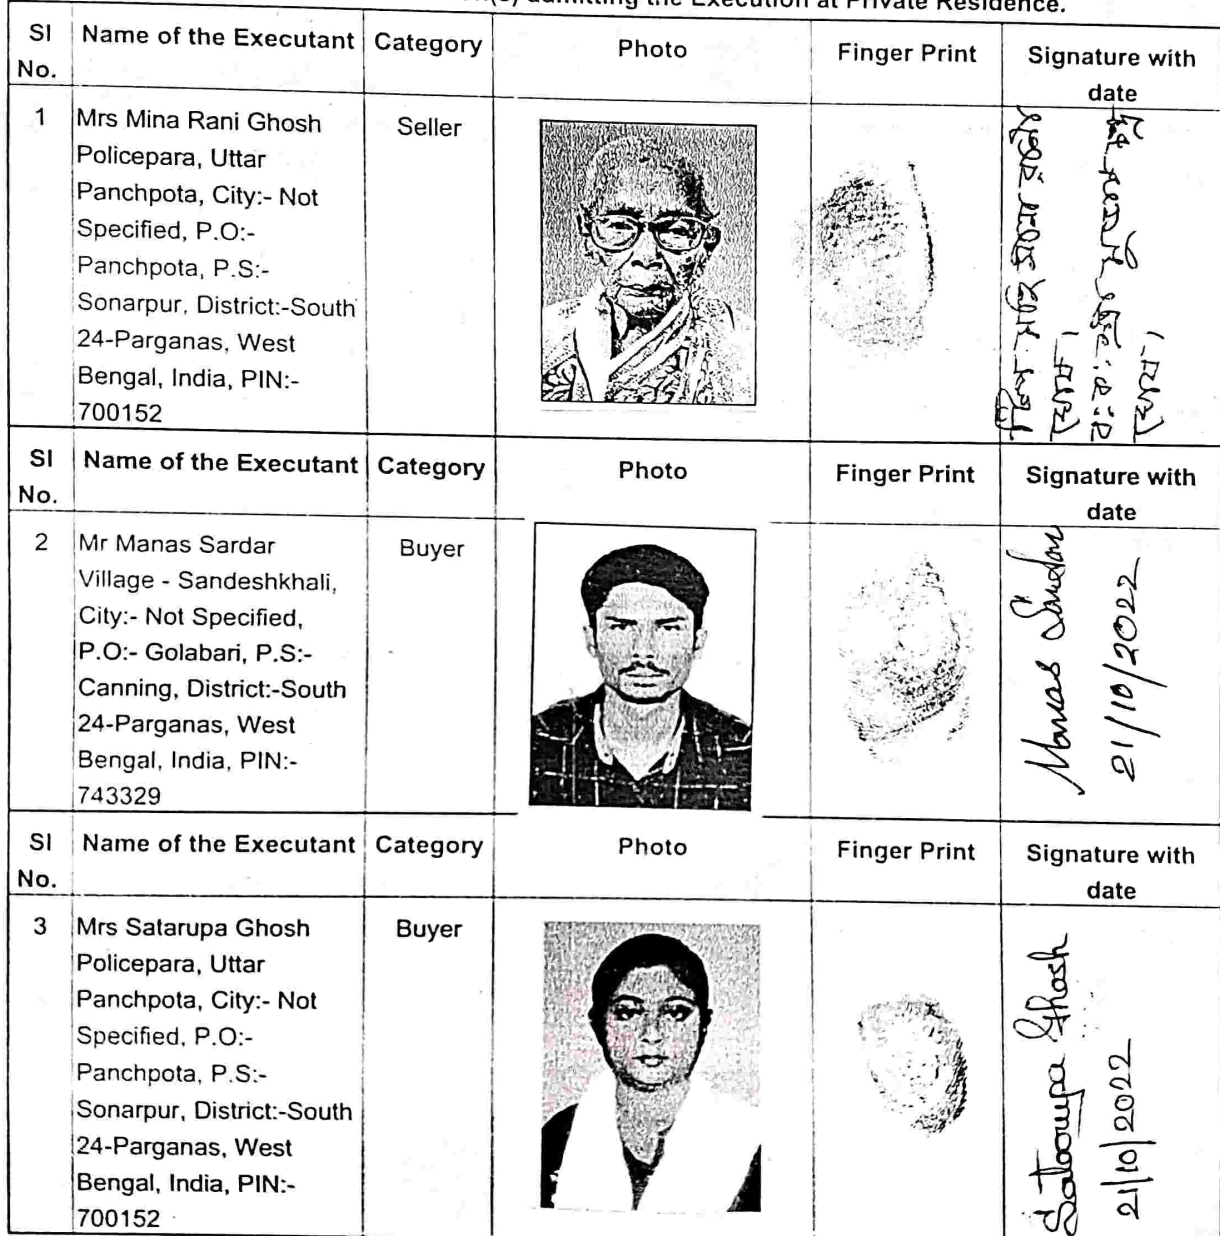 admitting the Execution at Private Residence.
SI No. Name of the Executant Category Photo Finger Print Signature with date
1 Mrs Mina Rani Ghosh Seller
Policepara, Uttar
Panchpota, City:- Not
Specified, P.O:-
Panchpota, P.S:-
Sonarpur, District:-South
24-Parganas, West
Bengal, India, PIN:-
700152
SI No. Name of the Executant Category Photo Finger Print Signature with date
2 Mr Manas Sardar Buyer
Village - Sandeshkhali,
City:- Not Specified,
P.O:- Golabari, P.S:-
Canning, District:-South
24-Parganas, West
Bengal, India, PIN:-
743329
Manas Sardar
21/10/2022
SI No. Name of the Executant Category Photo Finger Print Signature with date
3 Mrs Satarupa Ghosh Buyer
Policepara, Uttar
Panchpota, City:- Not
Specified, P.O:-
Panchpota, P.S:-
Sonarpur, District:-South
24-Parganas, West
Bengal, India, PIN:-
700152
Satarupa Ghosh
21/10/2022